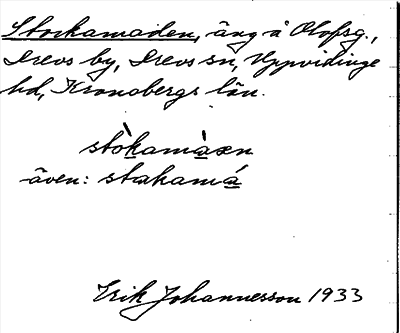 Stockamaden, äng å Olofsg.,
Drevs by, Drevs sn, Uppvidinge
hd, Kronobergs län.
stòkamàæn
även: stakamá
Erik Johannesson 1933